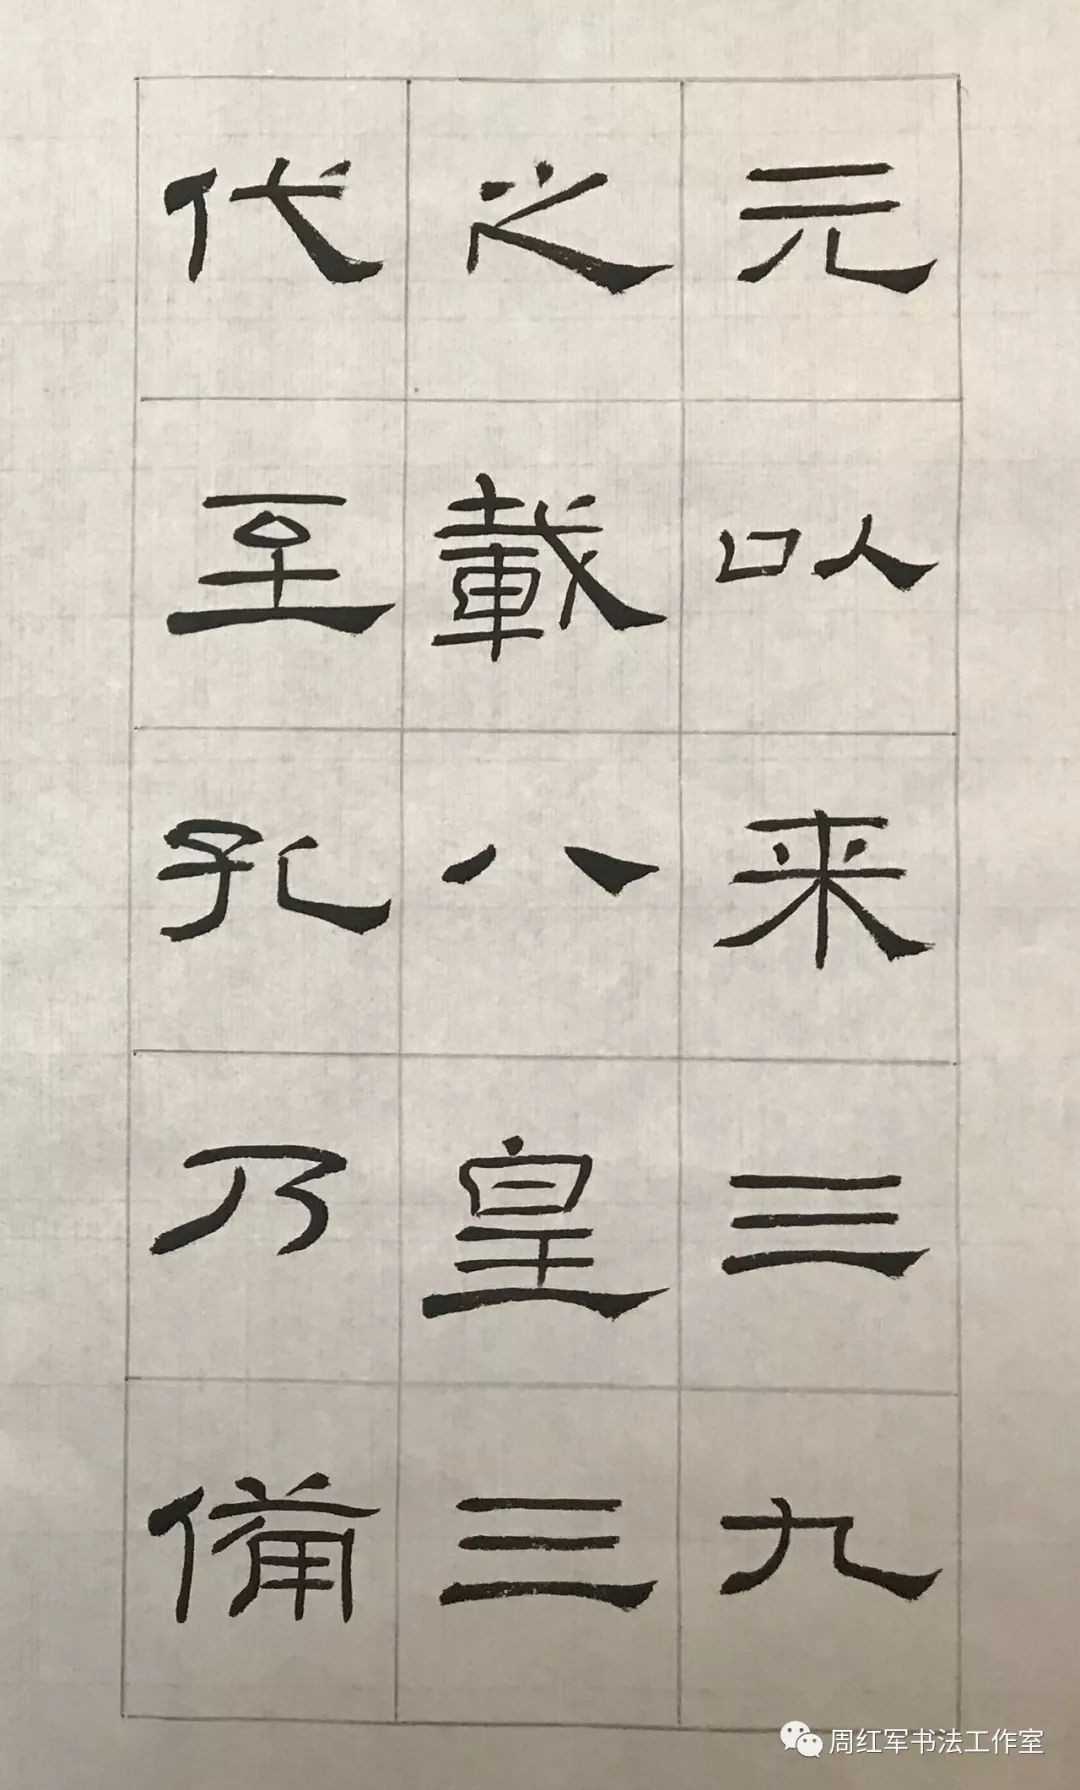 元以来三九
之載八皇三
代至孔乃備
周红军书法工作室